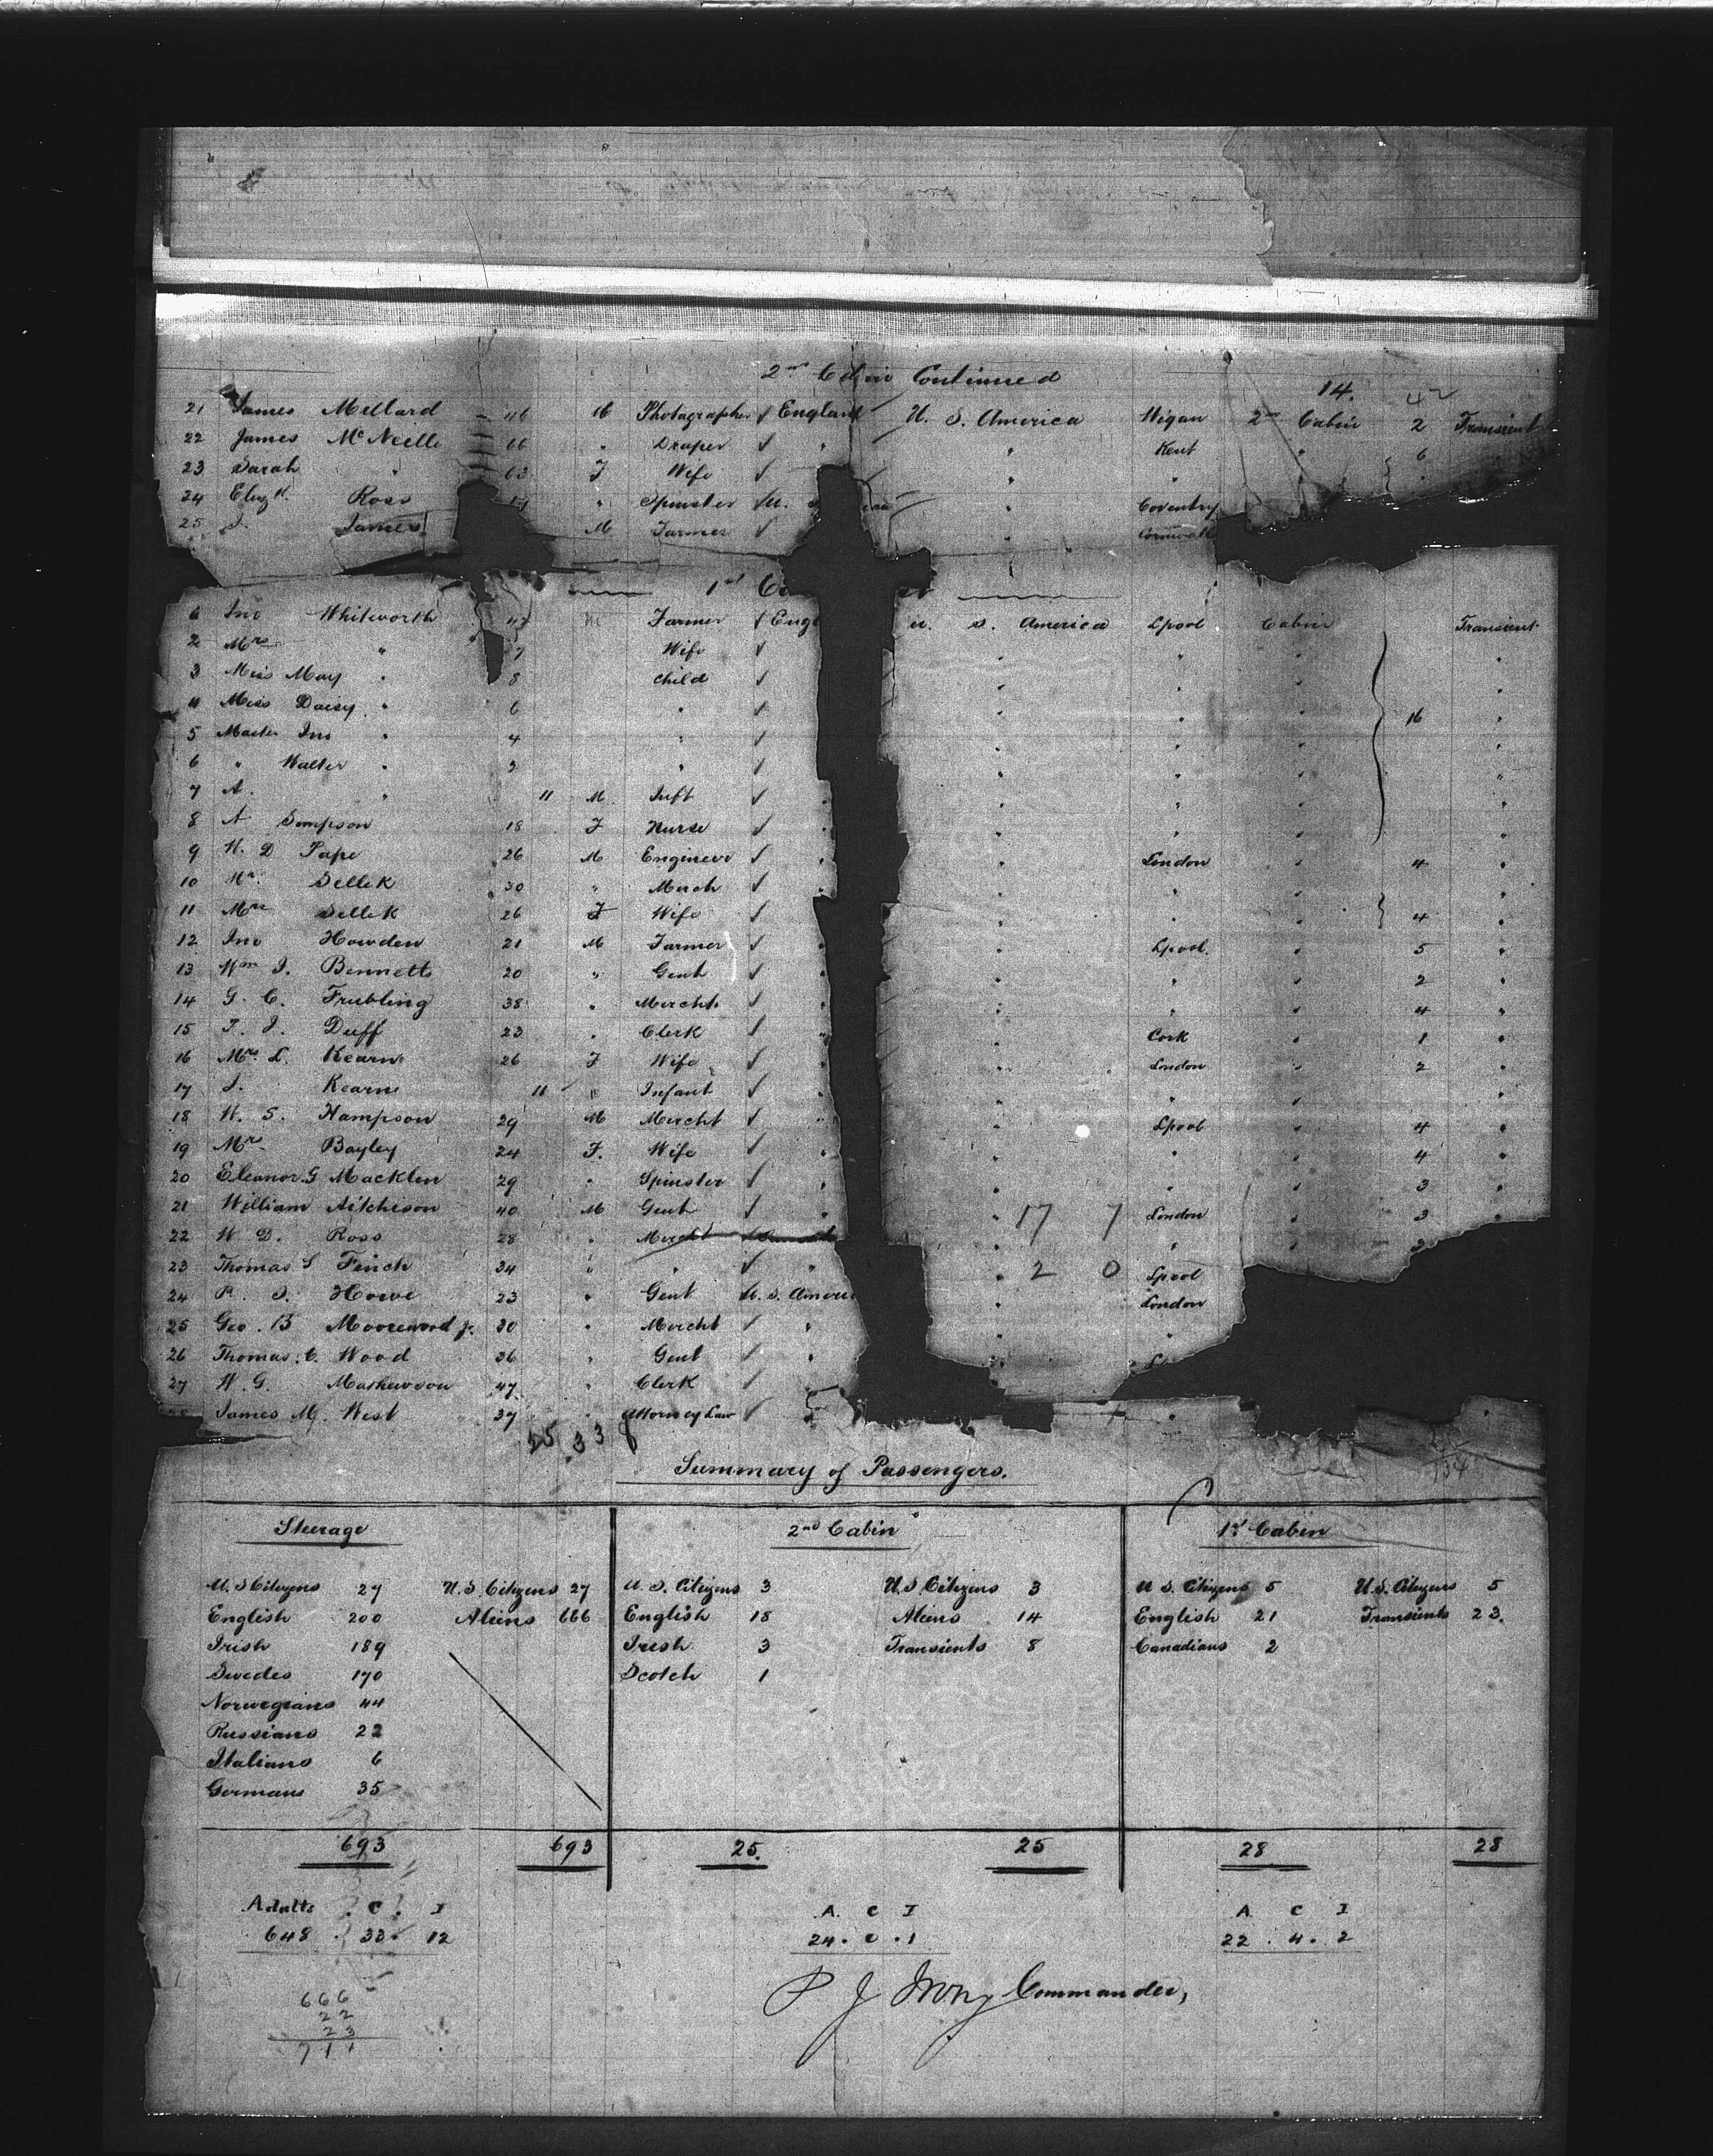 2nd Cabin Continued
14.
21 James Millard 46 M Photographer ✓ England U. S. America Wigan 2nd Cabin 2 Transient
22 James McNeille 66 " Draper ✓ " " Kent " 6
23 Sarah " 63 F Wife ✓ " "
24 Eliz H. Ross " Spinster ✓ U. " Coventry
25 J. James M Farmer ✓ " Cornwall
1st
Jno Whitworth 47 M Farmer ✓ Eng U. S. America Lpool Cabin Transient
2 Mrs " 7 Wife ✓ " " " "
3 Miss May " 8 child ✓ " " " "
4 Miss Daisy " 6 " ✓ " " " 16 "
5 Master Jno " 4 " ✓ " " " "
6 " Walter " 2 " ✓ " " " "
7 A. " 11 M. Inft ✓ " " " "
8 A Sompson 18 F Nurse ✓ " " " "
9 W. D Pape 26 M Engineer ✓ " " London " 4 "
10 Mr. Sellek 30 " Merch ✓ " " " " "
11 Mrs Sellek 26 F Wife ✓ " " " 4 "
12 Jno Howden 21 M Farmer ✓ " " Lpool. " 5 "
13 Wm J. Bennett 20 " Gent ✓ " " " " 2 "
14 G. C. Frubling 38 " Mercht. ✓ " " " " 4 "
15 T. J. Duff 23 " Clerk ✓ " " Cork " 1 "
16 Mrs L. Kearn 26 F Wife ✓ " " London " 2 "
17 J. Kearn 11 " Infant ✓ " " " " "
18 W. S. Hampson 29 M Mercht ✓ " " Lpool " 4 "
19 Mrs Bayley 24 F. Wife ✓ " " " " 4 "
20 Eleanor G Macklin 29 " Spinster ✓ " " " " 3 "
21 William Aitchison 40 M Gent ✓ " " 17 7 London " 3 "
22 W. D. Ross 28 " Mercht ✓ " " "
23 Thomas S Finch 34 " " ✓ " " 2 0 Lpool
24 P. S. Howe 23 " Gent U. S. Ameri " London
25 Geo. B Moorewood jr. 30 " Mercht ✓ " " "
26 Thomas. C. Wood 36 " Gent ✓ " "
27 W. G. Mathewson 47 " Clerk ✓
James M. West 37 " Attorney Law ✓
Summary of Passengers.
Steerage 2nd Cabin 1st Cabin
U. S Citizens 27 U. S Citizens 27 U. S. Citizens 3 U. S Citizens 3 U S. Citizens 5 U. S. Citizens 5
English 200 Aliens 666 English 18 Aliens 14 English 21 Transients 23.
Irish 189 Irish 3 Transients 8 Canadians 2
Swedes 170 Scotch 1
Norwegians 44
Russians 22
Italians 6
Germans 35
693 693 25. 25 28 28
Adults C. I A. C I A. C I
648 . 33. 12 24. 0 . 1 22 . 4. 2
P J Irving Commander,
666
22
23
711